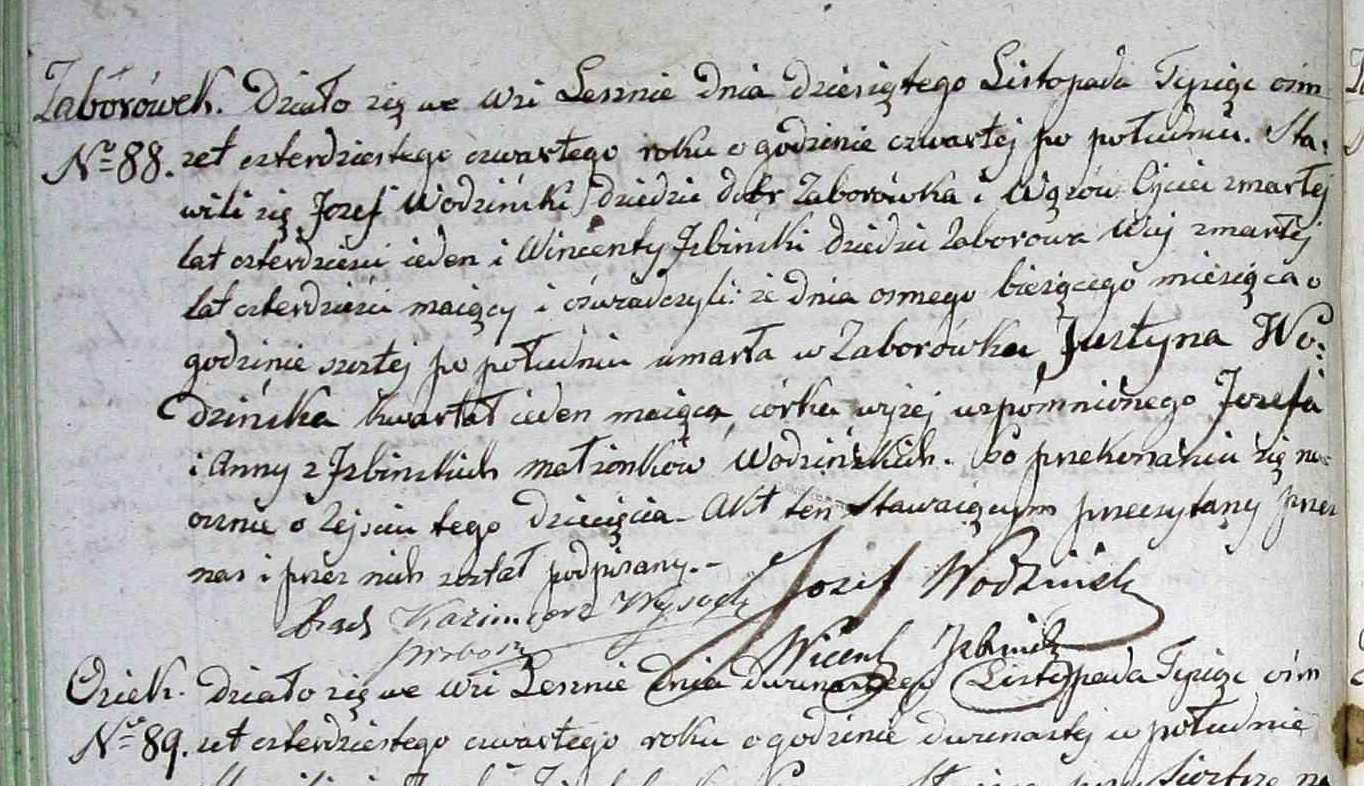 Zaborówek. Działo się we Wsi Lesznie dnia dziesiątego Listopada Tysiąc ośm
Nro 88. set czterdziestego czwartego roku o godzinie czwartej po południu. Sta:
wili się Jozef Wodziński dziedzic dóbr Zaborówka i Wąsów Ojciec zmarłej
lat czterdzieści ieden i Wincenty Izbiński dziedzic Zaborowa Wuj zmarłej
lat czterdzieści maiący i oświadczyli: że dnia osmego bieżącego miesiąca o
godzinie szostej po południu umarła w Zaborówku Justyna Wo:
dzińska kwartał ieden maiąca, córka wyżej wspomnionego Jozefa
i Anny z Izbinskich małżonków Wodzińskich. Po przekonaniu się na
ocznie o Zejściu tego dziecięcia. Akt ten stawaiącym przeczytany przez
nas i przez nich został podpisany.-
Kazimierz Wysocki Jozef Wodzinski
proboszcz Wicenty Izbinski
Osiek. Działo się we Wsi Lesznie dnia dwunastego Listopada Tysiąc ośm
Nro 89. set czterdziestego czwartego roku o godzinie dwunastej w południe